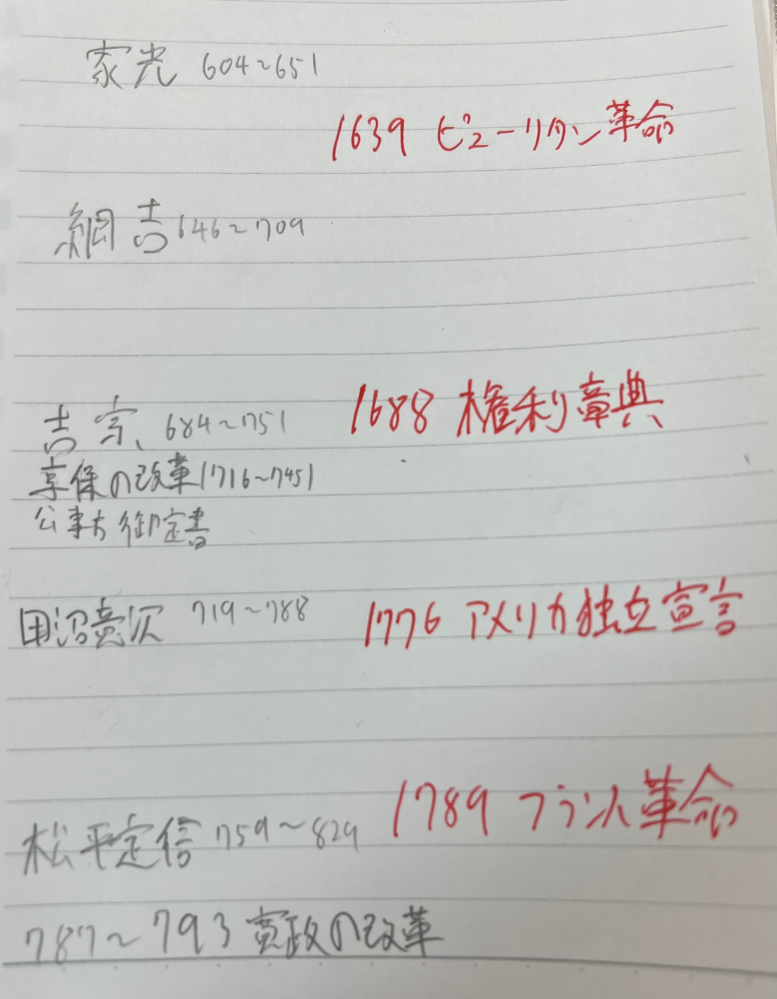 家光 604~651
1639 ピューリタン革命
綱吉 646~709
吉宗、684~751 1688 権利章典
享保の改革1716~1745)
公事方御定書
田沼意次 719~788 1776 アメリカ独立宣言
松平定信 759~829 1789 フランス革命
787~793 寛政の改革